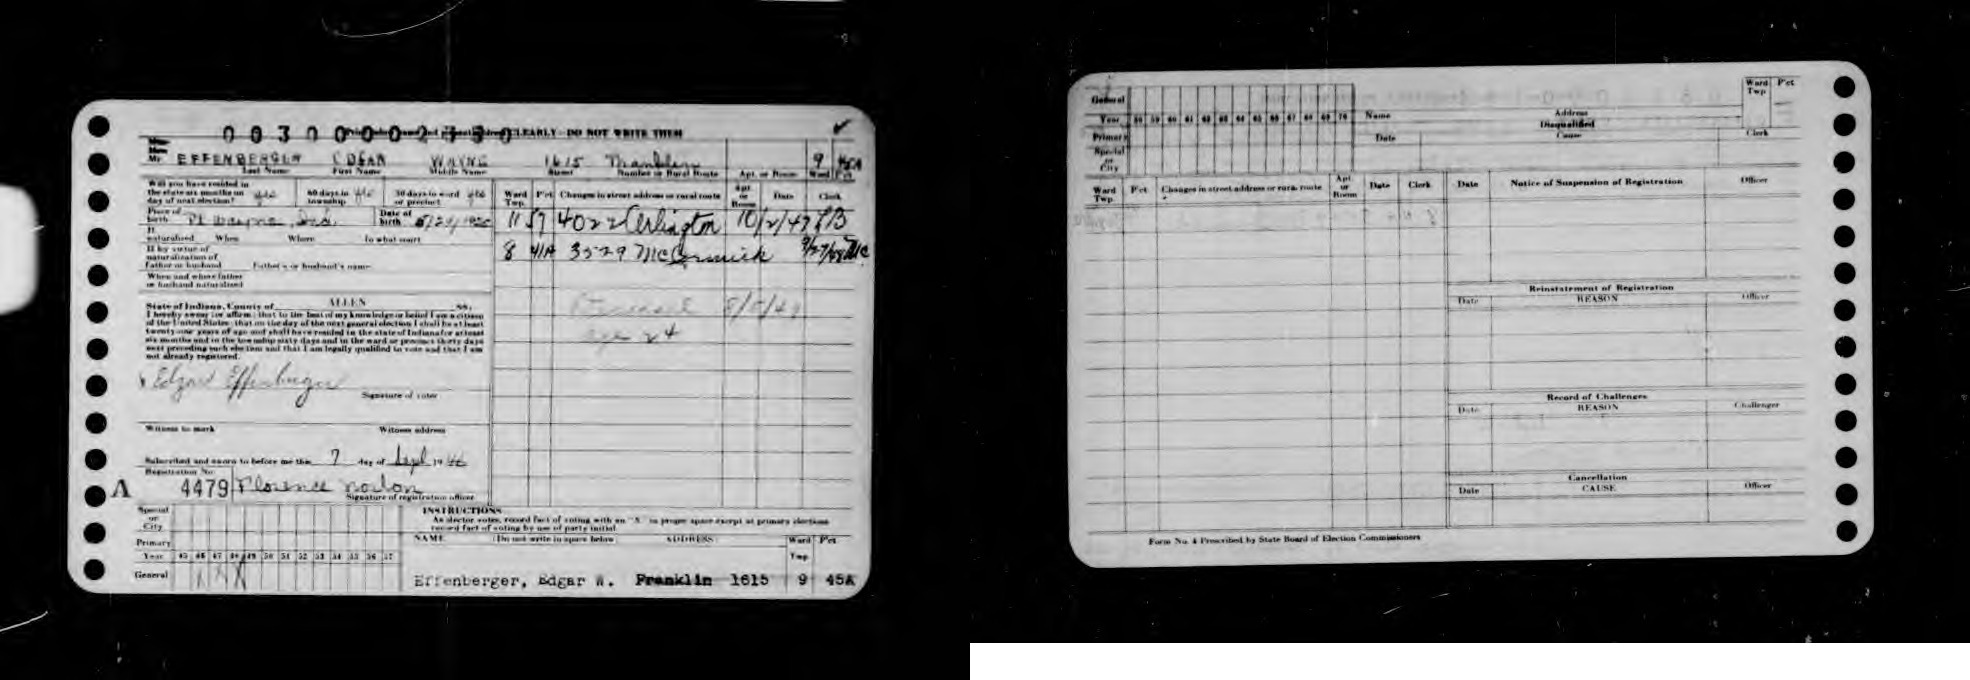 CLEARLY - DO NOT WRITE THEM
Mr. EFFENBERGER EDGAR WAYNE 1615 Franklin 9 45A
Last Name First Name Middle Name Street Number or Rural Route Apt. or Room Ward Pct
Will you have resided in the state six months on day of next election? yes 60 days in township yes 30 days in ward or precinct yes
Ward Twp. P'ct Changes in street address or rural route Apt. or Room Date Clerk
Place of birth Ft Wayne, Ind. Date of birth
11 57 4022 Arlington 10/2/47
If naturalized When Where In what court
8 41A 3529 McCormick 9/27/48 Mc
If by virtue of naturalization of Father or husband Father's or husband's name
When and where father or husband naturalized
State of Indiana, County of ALLEN SS:
I hereby swear (or affirm) that to the best of my knowledge or belief I am a citizen
of the United States; that on the day of the next general election I shall be at least
twenty-one years of age and shall have resided in the state of Indiana for at least
six months and in the township sixty days and in the ward or precinct thirty days
next preceding such election and that I am legally qualified to vote and that I am
not already registered.
Deceased
age 24
Edgar Effenberger
Signature of voter
Witness to mark Witness address
Subscribed and sworn to before me this 7 day of Sept 19 46
Registration No.
A 4479 Florence Norton
Signature of registration officer
INSTRUCTIONS
As elector votes, record fact of voting with an "X" in proper space except at primary elections
record fact of voting by use of party initial.
Special or City
Primary
NAME (Do not write in space below) ADDRESS Ward Twp. P'ct
Year 45 46 47 48 49 50 51 52 53 54 55 56 57
General X X X
Effenberger, Edgar W. Franklin 1615 9 45A
General
Ward Twp P'ct
Year 58 59 60 61 62 63 64 65 66 67 68 69 70 Name Address
Disqualified
Primary Date Cause Clerk
Special or City
Ward Twp. P'ct Changes in street address or rural route Apt. or Room Date Clerk Date Notice of Suspension of Registration Officer
Reinstatement of Registration
Date REASON Officer
Record of Challenges
Date REASON Challenger
Cancellation
Date CAUSE Officer
Form No. 4 Prescribed by State Board of Election Commissioners